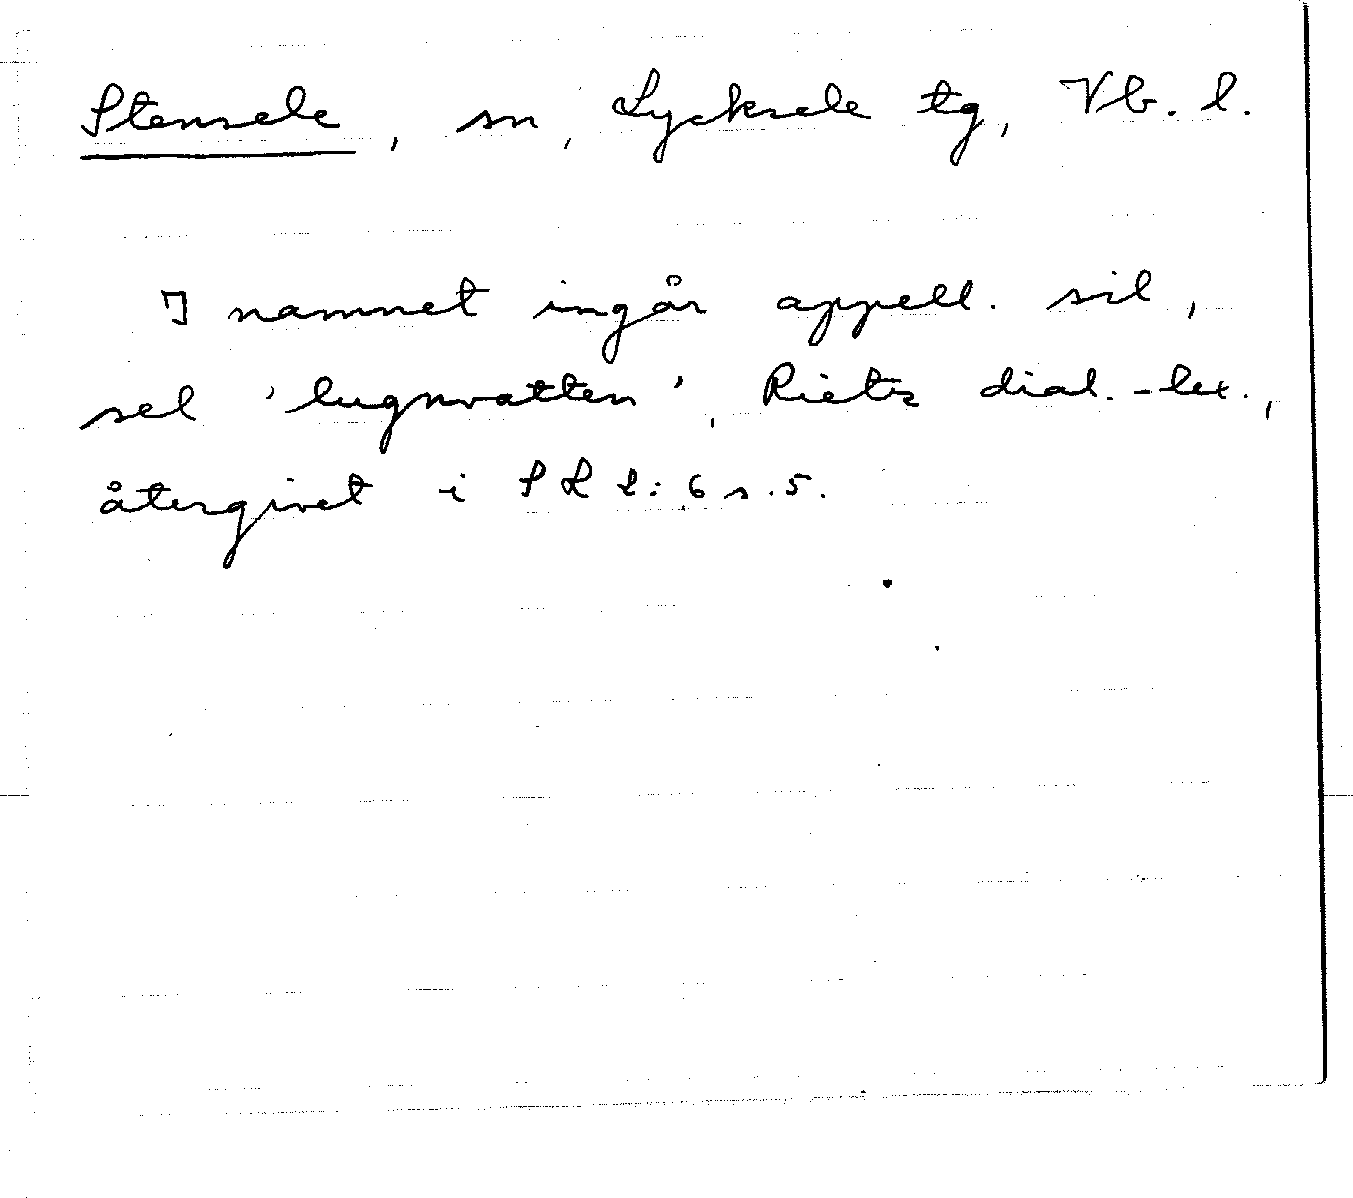 Stensele, sn, Lycksele tg, Vb. l.
I namnet ingår appell. sil,
sel 'lugnvatten', Rietz dial.-lex.,
återgivet i SL 2:6 s.5.